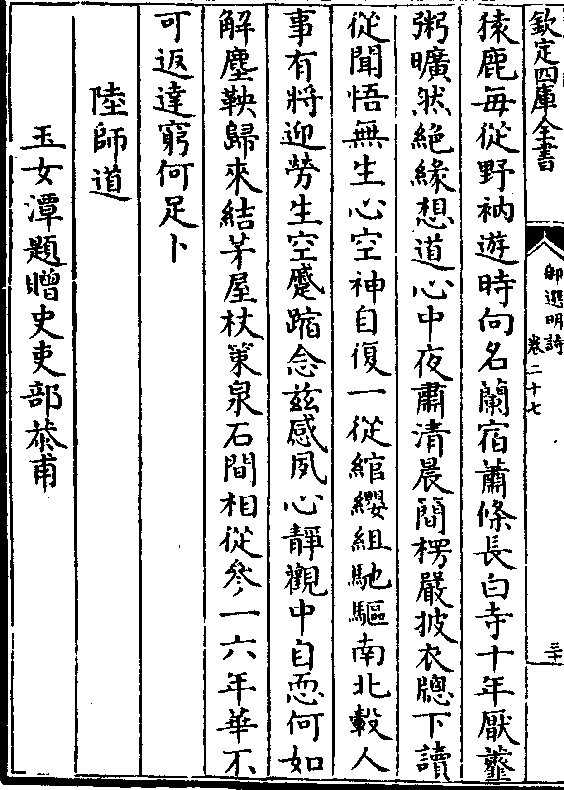 欽定四庫全書
御選明詩
卷二十七
三十
猿鹿每從野衲遊時向名蘭宿蕭條長白寺十年厭虀
粥曠然絕緣想道心中夜肅清晨簡楞嚴披衣牕下讀
從聞悟無生心空神自復一從綰纓組馳驅南北轂人
事有將迎勞生空蹙蹜念兹感夙心靜觀中自恧何如
解塵鞅歸來結茅屋杖策泉石間相從參一六年華不
可返達窮何足卜
陸師道
玉女潭題贈史吏部恭甫